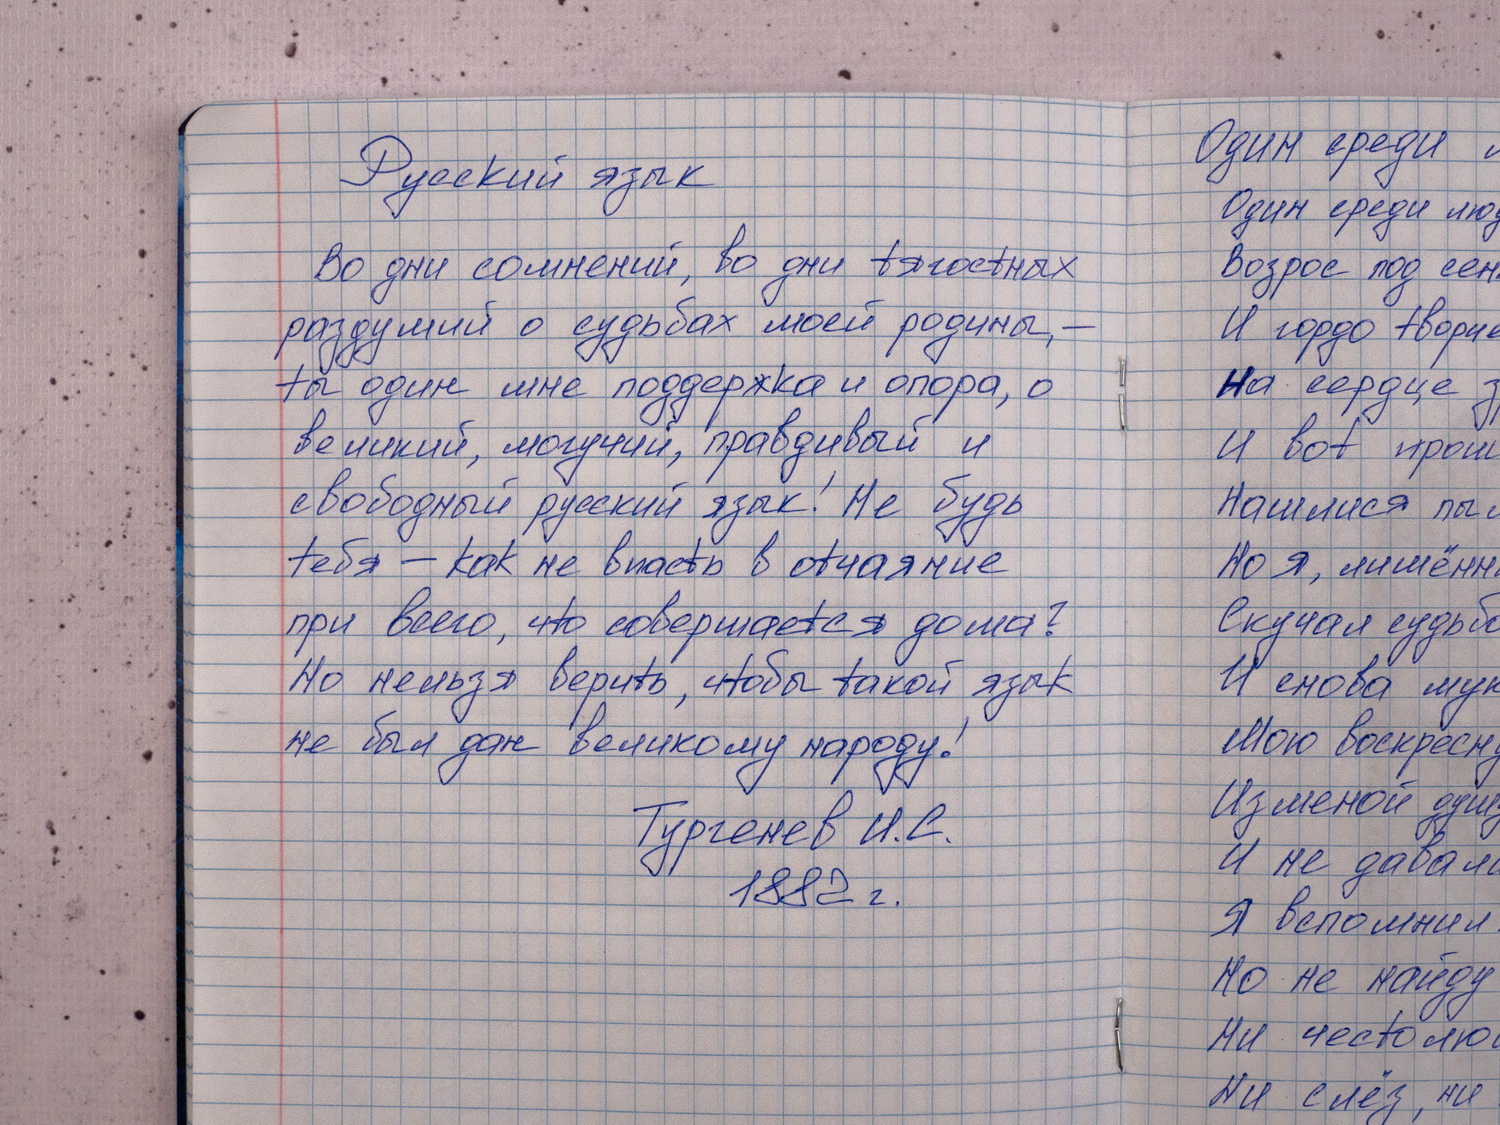 Русский язык
Во дни сомнений, во дни тягостных
раздумий о судьбах моей родины, –
ты один мне поддержка и опора, о
великий, могучий, правдивый и
свободный русский язык! Не будь
тебя – как не впасть в отчаяние
при всего, что совершается дома?
Но нельзя верить, чтобы такой язык
не был дан великому народу!
Тургенев И.С.
1882 г.
Один среди
Один среди
Возрос под
И гордо
На сердце
И вот
Нашлися
Но я,
Скучал
И снова
Мою
Изменой
И не
Я вспомнил
Но не найду
Ни
Ни слёз, ни